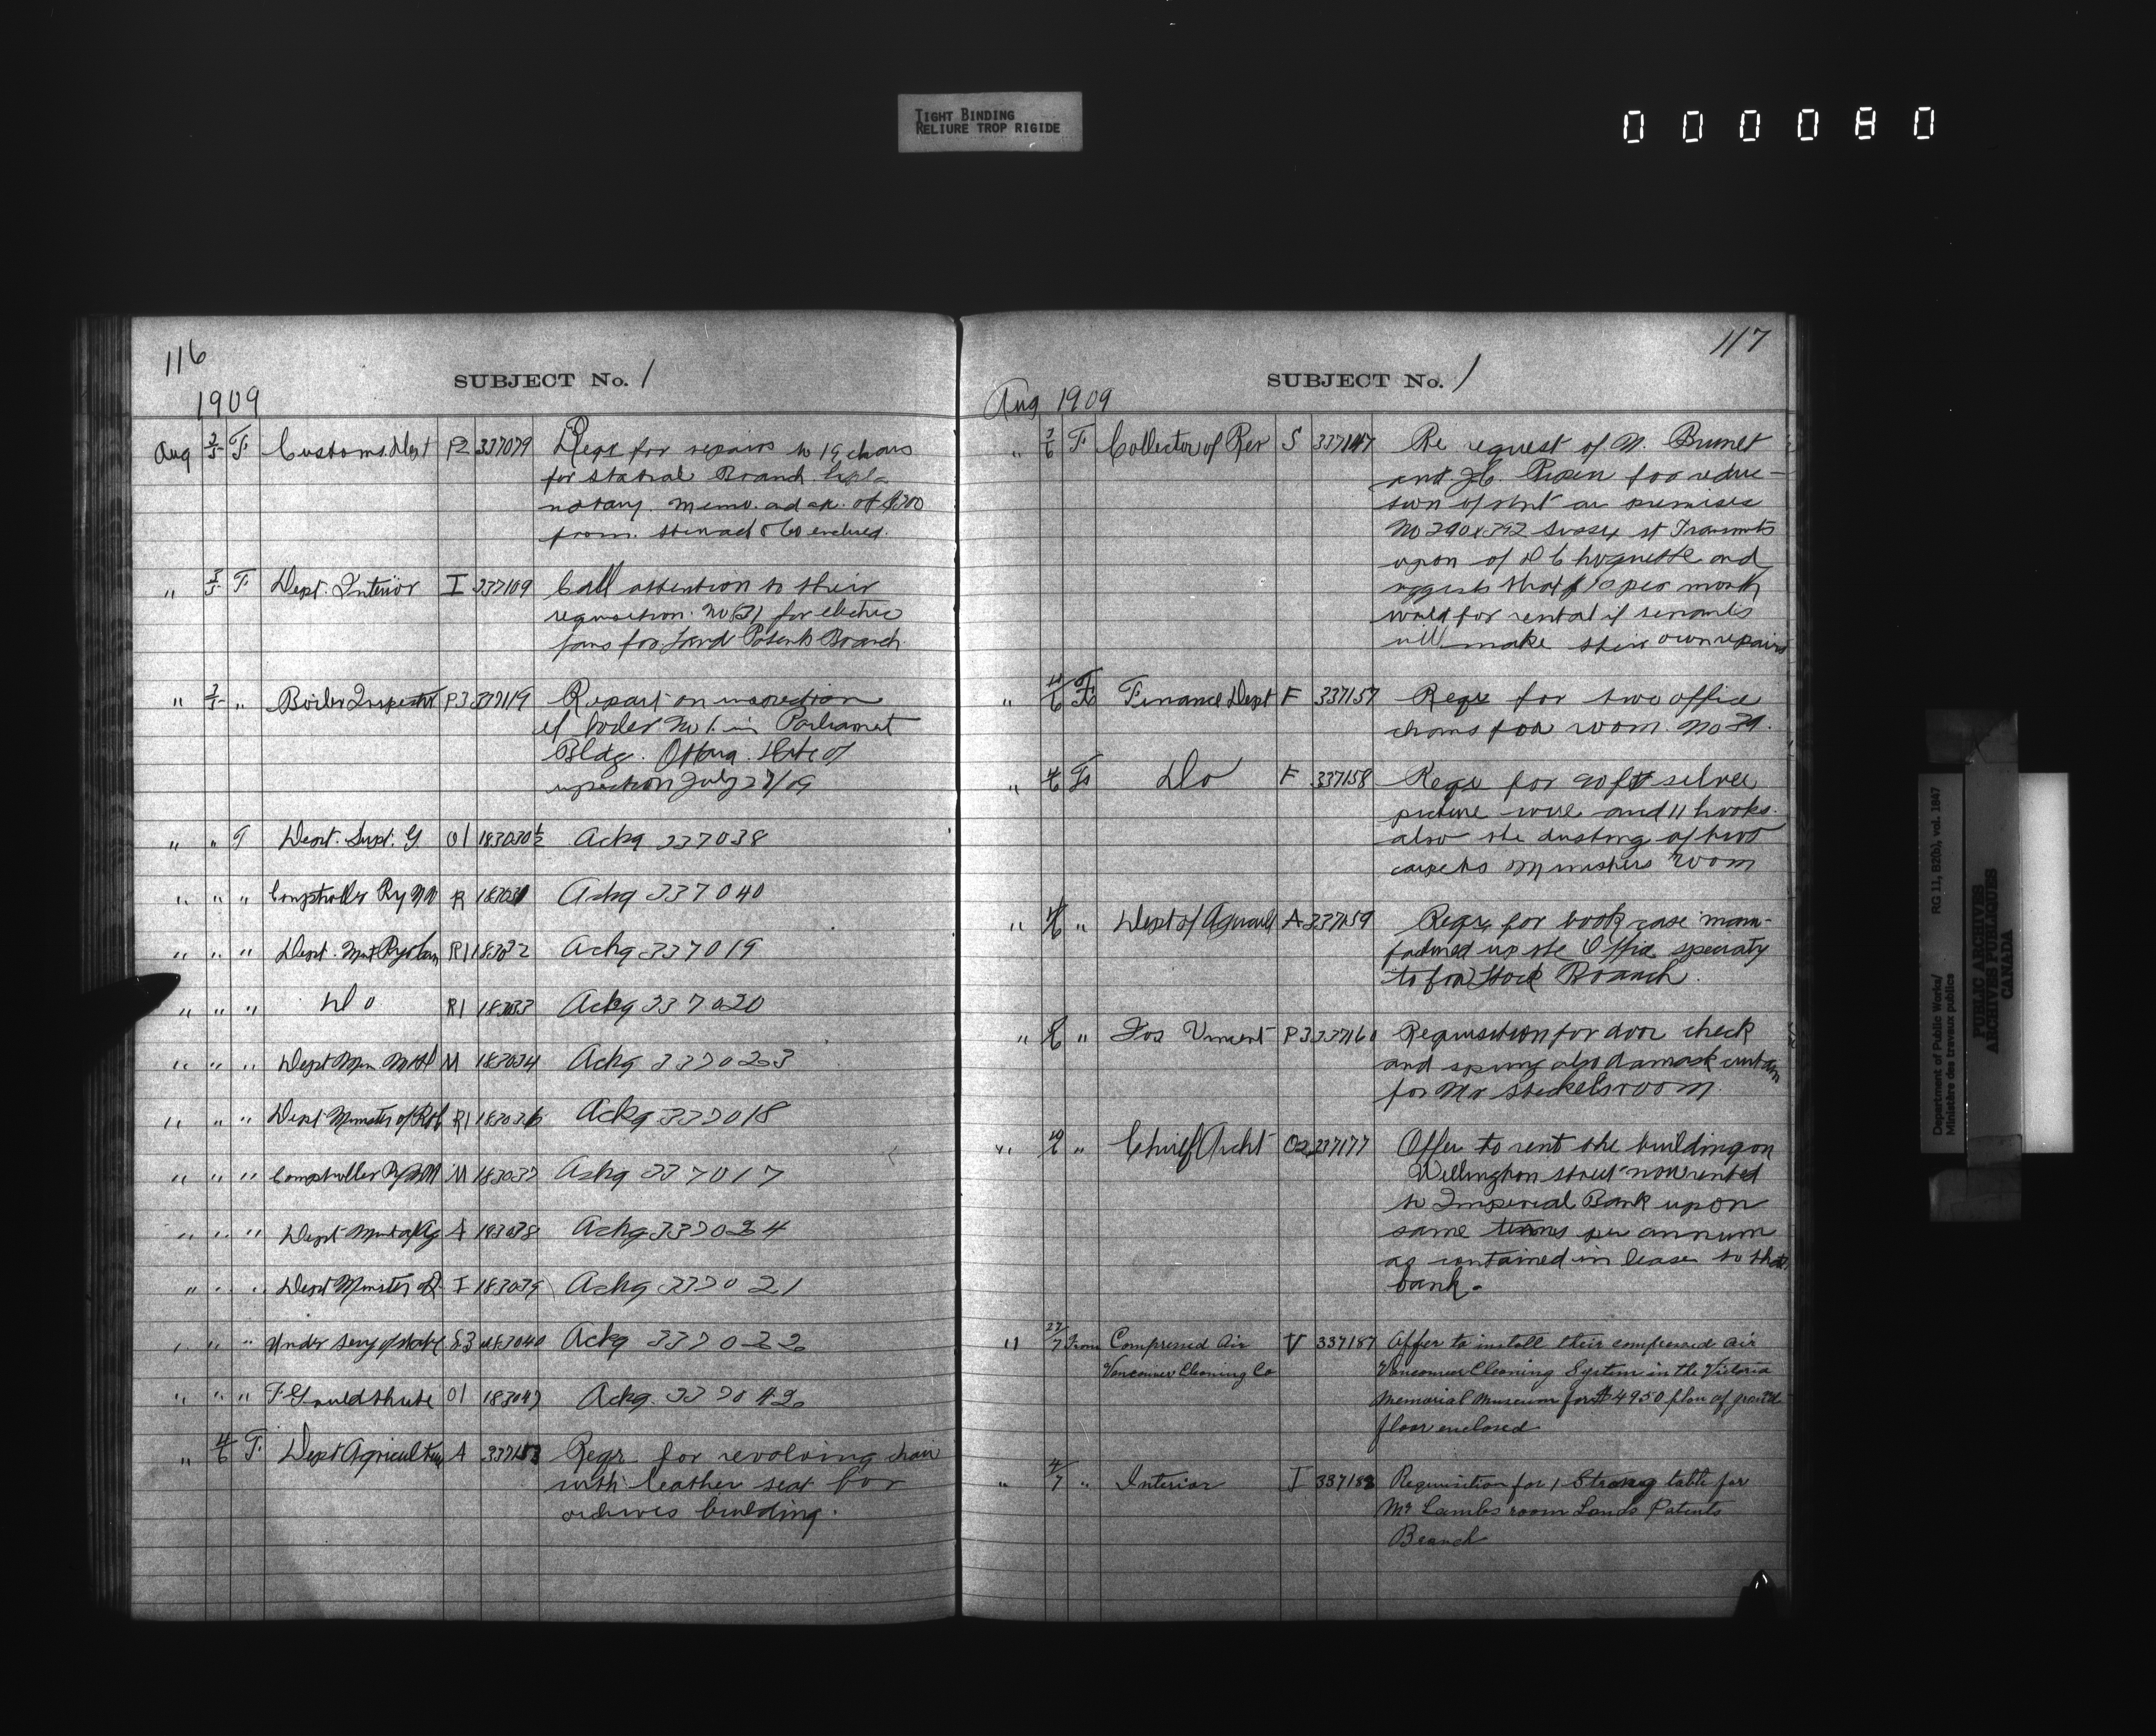 TIGHT BINDING
RELIURE TROP RIGIDE
000080
116
SUBJECT No. 1
1909
Aug 3/5 F Customs Dept P2 337079 Reqr for repairs to 19 chairs
for Branch
notary. memo. and of $200
from enclosed.
" 3/5 F Dept. Interior I 337109 Call attention to their
requisition No 31 for electric
fans for Land Patents Branch
" 3/5 " Boiler Inspector P3 337119 Report on inspection
of boiler No 1. in Parliament
Bldg. Ottawa. Date of
inspection July 27/09
" " T Dept. Supt. G O1 183030½ Ackg 337038
" " " Comptroller Ry R Ackg 337040
" " " Dept. R1 Ackg 337019
" " " Do R1 183033 Ackg 337020
" " " Dept Min M 183034 Ackg 337023
" " " Dept Minister of R1 183036 Ackg 337018
" " " Comptroller M 183037 Ackg 337017
" " " Dept Ag A 183038 Ackg 337024
" " " Dept Minister I 183039 Ackg 337021
" " " Under Secy of State S3 183040 Ackg 337022
" " " O1 Ackg. 337042
" 4/6 F Dept Agriculture A Reqr for revolving chair
with leather seat for
archives building.
117
SUBJECT No. 1
Aug 1909
" 3/6 F Collector of Rev S 337147 Re request of N. Brunet
and for reduc-
tion of rent on premises
No 390 & 392 Sussex st Transmits
upon of and
suggests that $10 per month
would for rental if tenants
will make their own repairs
" 4/6 F Finance Dept F 337157 Reqr for two office
chairs for room No 39.
" 4/6 F Do F 337158 Reqr for 90 ft silver
picture wire and 11 hooks.
also the dusting of two
carpets in ministers room
" 4/6 " Dept of Agricul A 337159 Reqr for book case manu-
factured up the Office specialty
to for Stock Branch.
" 4/6 " Jos Vincent P3 337160 Requisition for door check
and spring also damask curtain
for Mr Steckels room.
" 4/6 " Chief Archt O2 337177 Offer to rent the building on
Wellington street now rented
to Imperial Bank upon
same terms per annum
as contained in lease to that
bank.
" 27/7 From Compressed Air V 337187 Offer to install their compressed air
Vancouver Cleaning Co Vancouver Cleaning System in the Victoria
Memorial Museum for $4950 plan of ground
floor enclosed
" 4/7 " Interior I 337188 Requisition for 1 Strong table for
Mr Lambs room Lands Patents
Branch
Department of Public Works/ RG 11, B2(b), vol. 1847
Ministère des travaux publics
PUBLIC ARCHIVES
ARCHIVES PUBLIQUES
CANADA